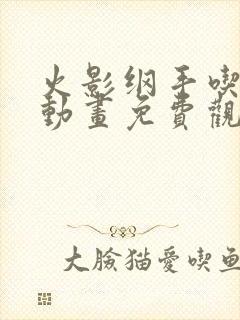 火影纲手喫
動畫免費觀
大臉猫愛喫鱼